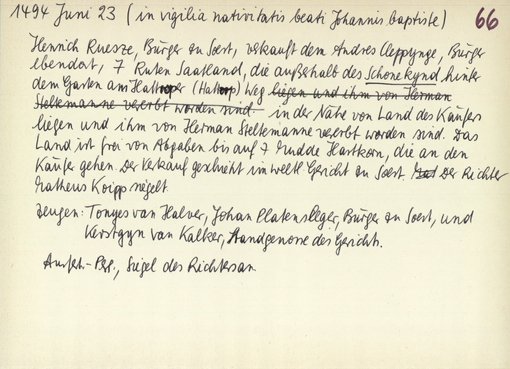 1494 Juni 23 (in vigilia nativitatis beati Johannis baptiste) 66
Henrich Ruesze, Bürger zu Soest, verkauft dem Andres Cleppynge, Bürger
ebendort, 7 Ruten Saatland, die außerhalb des Schonekynd hinter
dem Garten am Hattroper (Hattrop) Weg liegen und ihm von Herman
Steltemanne vererbt worden sind. in der Nähe von Land des Käufers
liegen und ihm von Herman Steltemanne vererbt worden sind. Das
Land ist frei von Abgaben bis auf 7 Mudde Hartkorn, die an den
Käufer gehen. Der Verkauf geschieht im weltl. Gericht zu Soest. Der Richter
Matheus Koipp siegelt
Zeugen: Tonyes van Halver, Johan Platensleger, Bürger zu Soest, und
Kerstgyn van Kalker, Standgenose des Gerichts.
Ausf.-Perg., Siegel des Richters an